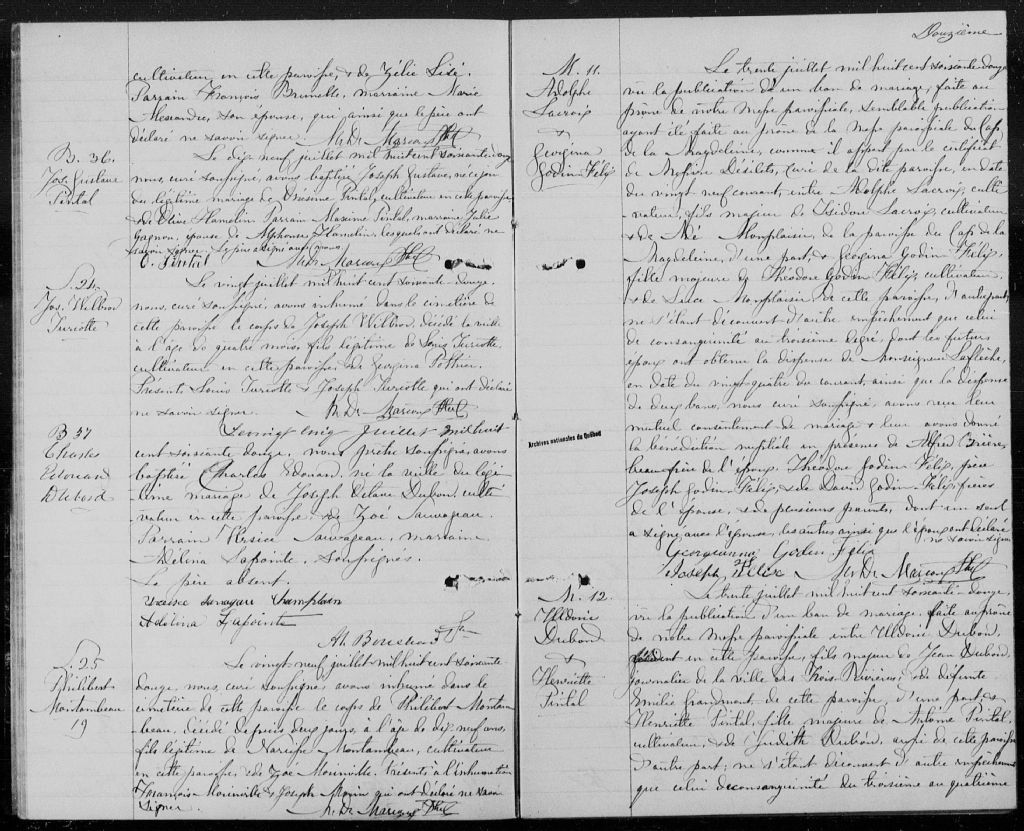 cultivateur en cette paroisse, & de Zélie Lisé.
Parrain François Brunelle, marraine Marie
son épouse, qui ainsi que le père ont
déclaré ne savoir signer. M. Dr. Marcoux Ptre
B. 36.
Jos. Gustave
Pintal
Le dix neuf juillet mil huit cent soixante douze
nous, curé soussigné, avons baptisé Joseph Gustave, né ce jour
du légitime mariage de Onésime Pintal, cultivateur en cette paroisse,
& de Olive Hamelin. Parrain Maxime Pintal, marraine Julie
Gagnon, épouse de Alphonse Hamelin, lesquels ont déclaré ne
savoir signer. Le père a signé avec nous.
O. Pintal M. Dr. Marcoux Ptre
S. 24.
Jos. Wilbrod
Turcotte
Le vingt juillet mil huit cent soixante douze,
nous, curé soussigné, avons inhumé dans le cimetière de
cette paroisse le corps de Joseph Wilbrod, décédé la veille
à l'âge de quatre mois, fils légitime de Louis Turcotte,
cultivateur en cette paroisse, & de Georgina Pothier.
Présents Louis Turcotte & Joseph Turcotte qui ont déclaré
ne savoir signer. M. Dr. Marcoux Ptre
B 37
Charles
Edouard
Dubord
Le vingt cinq Juillet mil huit
cent soixante douze, nous prêtre soussigné, avons
baptisé Charles Edouard, né la veille du légi-
time mariage de Joseph Octave Dubord, culti-
vateur en cette paroisse & de Zoé Sauvageau.
Parrain Ursice Sauvageau, marraine
Adélina Lapointe, soussignés.
Le père absent.
Adelina Lapointe
Ptre
S. 25
Philibert
Montambeau
19
Le vingt neuf juillet mil huit cent soixante
douze, nous, curé soussigné, avons inhumé dans le
cimetière de cette paroisse le corps de Philibert Montam-
beau, décédé depuis deux jours, à l'âge de dix neuf ans,
fils légitime de Narcisse Montambeau, cultivateur
en cette paroisse, & de Zoé Morinville. Présents à l'inhumation
François Morinville & Joseph Morin qui ont déclaré ne savoir
signer. M. Dr. Marcoux Ptre
Douzième
M. 11.
Adolphe
Lacroix
&
Georgina
Godin Félix
Le trente juillet mil huit cent soixante douze
vu la publication d'un ban de mariage, faite au
prône de notre Messe paroissiale, semblable publication
ayant été faite au prône de la Messe paroissiale du Cap
de la Magdeleine, comme il appert par le certificat
de Messire Désilets, curé de la dite paroisse, en date
du vingt neuf courant, entre Adolphe Lacroix, culti-
vateur, fils majeur de Isidore Lacroix, cultivateur
& de Monplaisir, de la paroisse du Cap de la
Magdeleine, d'une part, & Georgina Godin Félix,
fille majeure de Théodore Godin Félix, cultivateur
& de Luce Monplaisir de cette paroisse, d'autre part;
ne s'étant découvert d'autre empêchement que celui
de consanguinité au troisième degré, dont les futurs
époux ont obtenu la dispense de Monseigneur Laflèche,
en date du vingt quatre du courant, ainsi que la dispense
de deux bans, nous curé soussigné, avons reçu leur
mutuel consentement de mariage & leur avons donné
la bénédiction nuptiale en présence de Alfred
beau-frère de l'époux, Théodore Godin Félix, père
Joseph Godin Félix, & de David Godin Félix, frères
de l'épouse, & de plusieurs parents, dont un seul
a signé, avec l'épouse, les autres ainsi que l'époux ont déclaré
ne savoir signer
Georgianna Godin Felix
Joseph Félix M. Dr. Marcoux Ptre
Archives nationales du Québec
M. 12.
Uldoric
Dubord
&
Henriette
Pintal
Le trente juillet mil huit cent soixante douze,
vu la publication d'un ban de mariage, faite au prône
de notre Messe paroissiale entre Uldoric Dubord,
résident en cette paroisse, fils majeur de Jean Dubord,
journalier de la ville des Trois-Rivières, & de défunte
Emilie Grandmont, de cette paroisse, d'une part, &
Henriette Pintal, fille majeure de Antoine Pintal,
cultivateur, & de Judith Dubord, aussi de cette paroisse
d'autre part; ne s'étant découvert d'autre empêchement
que celui de consanguinité du troisième au quatrième